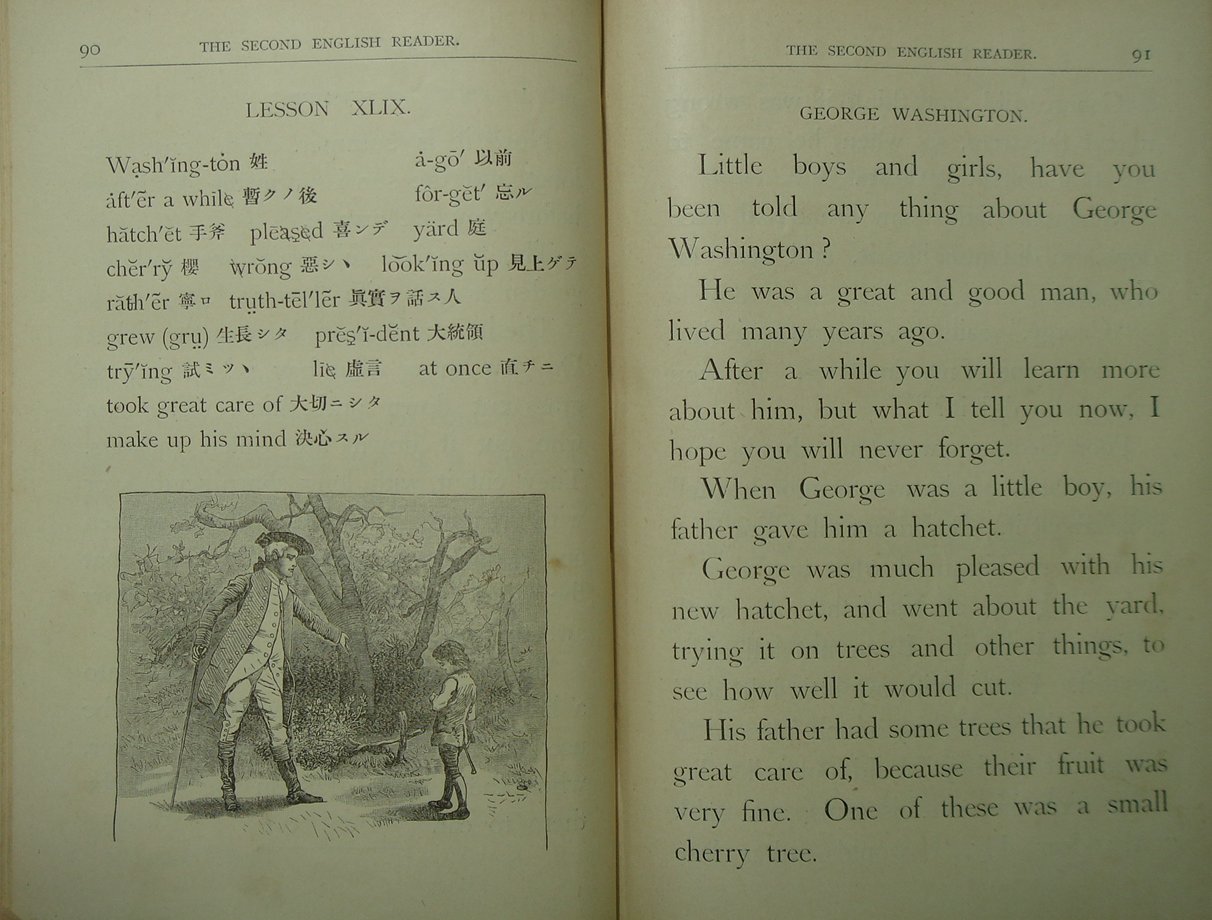 90 THE SECOND ENGLISH READER.
LESSON XLIX.
Wạsh′ĭng-tȯn 姓 ȧ-gō′ 以前
ȧft′ẽr a whīlȩ 暫クノ後 fôr-gĕt′ 忘ル
hătch′ĕt 手斧 plēaşȩd 喜ンデ yärd 庭
chĕr′rў 櫻 wrŏng 惡シヽ lo͝ok′ĭng ŭp 見上ゲテ
răth′ẽr 寧ロ trṳth-tĕl′lẽr 眞實ヲ話ス人
grew (grṳ) 生長シタ prĕş′ĭ-dĕnt 大統領
trȳ′ĭng 試ミツヽ līȩ 虛言 at once 直チニ
took great care of 大切ニシタ
make up his mind 決心スル
THE SECOND ENGLISH READER. 91
GEORGE WASHINGTON.
Little boys and girls, have you
been told any thing about George
Washington ?
He was a great and good man, who
lived many years ago.
After a while you will learn more
about him, but what I tell you now, I
hope you will never forget.
When George was a little boy, his
father gave him a hatchet.
George was much pleased with his
new hatchet, and went about the yard,
trying it on trees and other things, to
see how well it would cut.
His father had some trees that he took
great care of, because their fruit was
very fine. One of these was a small
cherry tree.